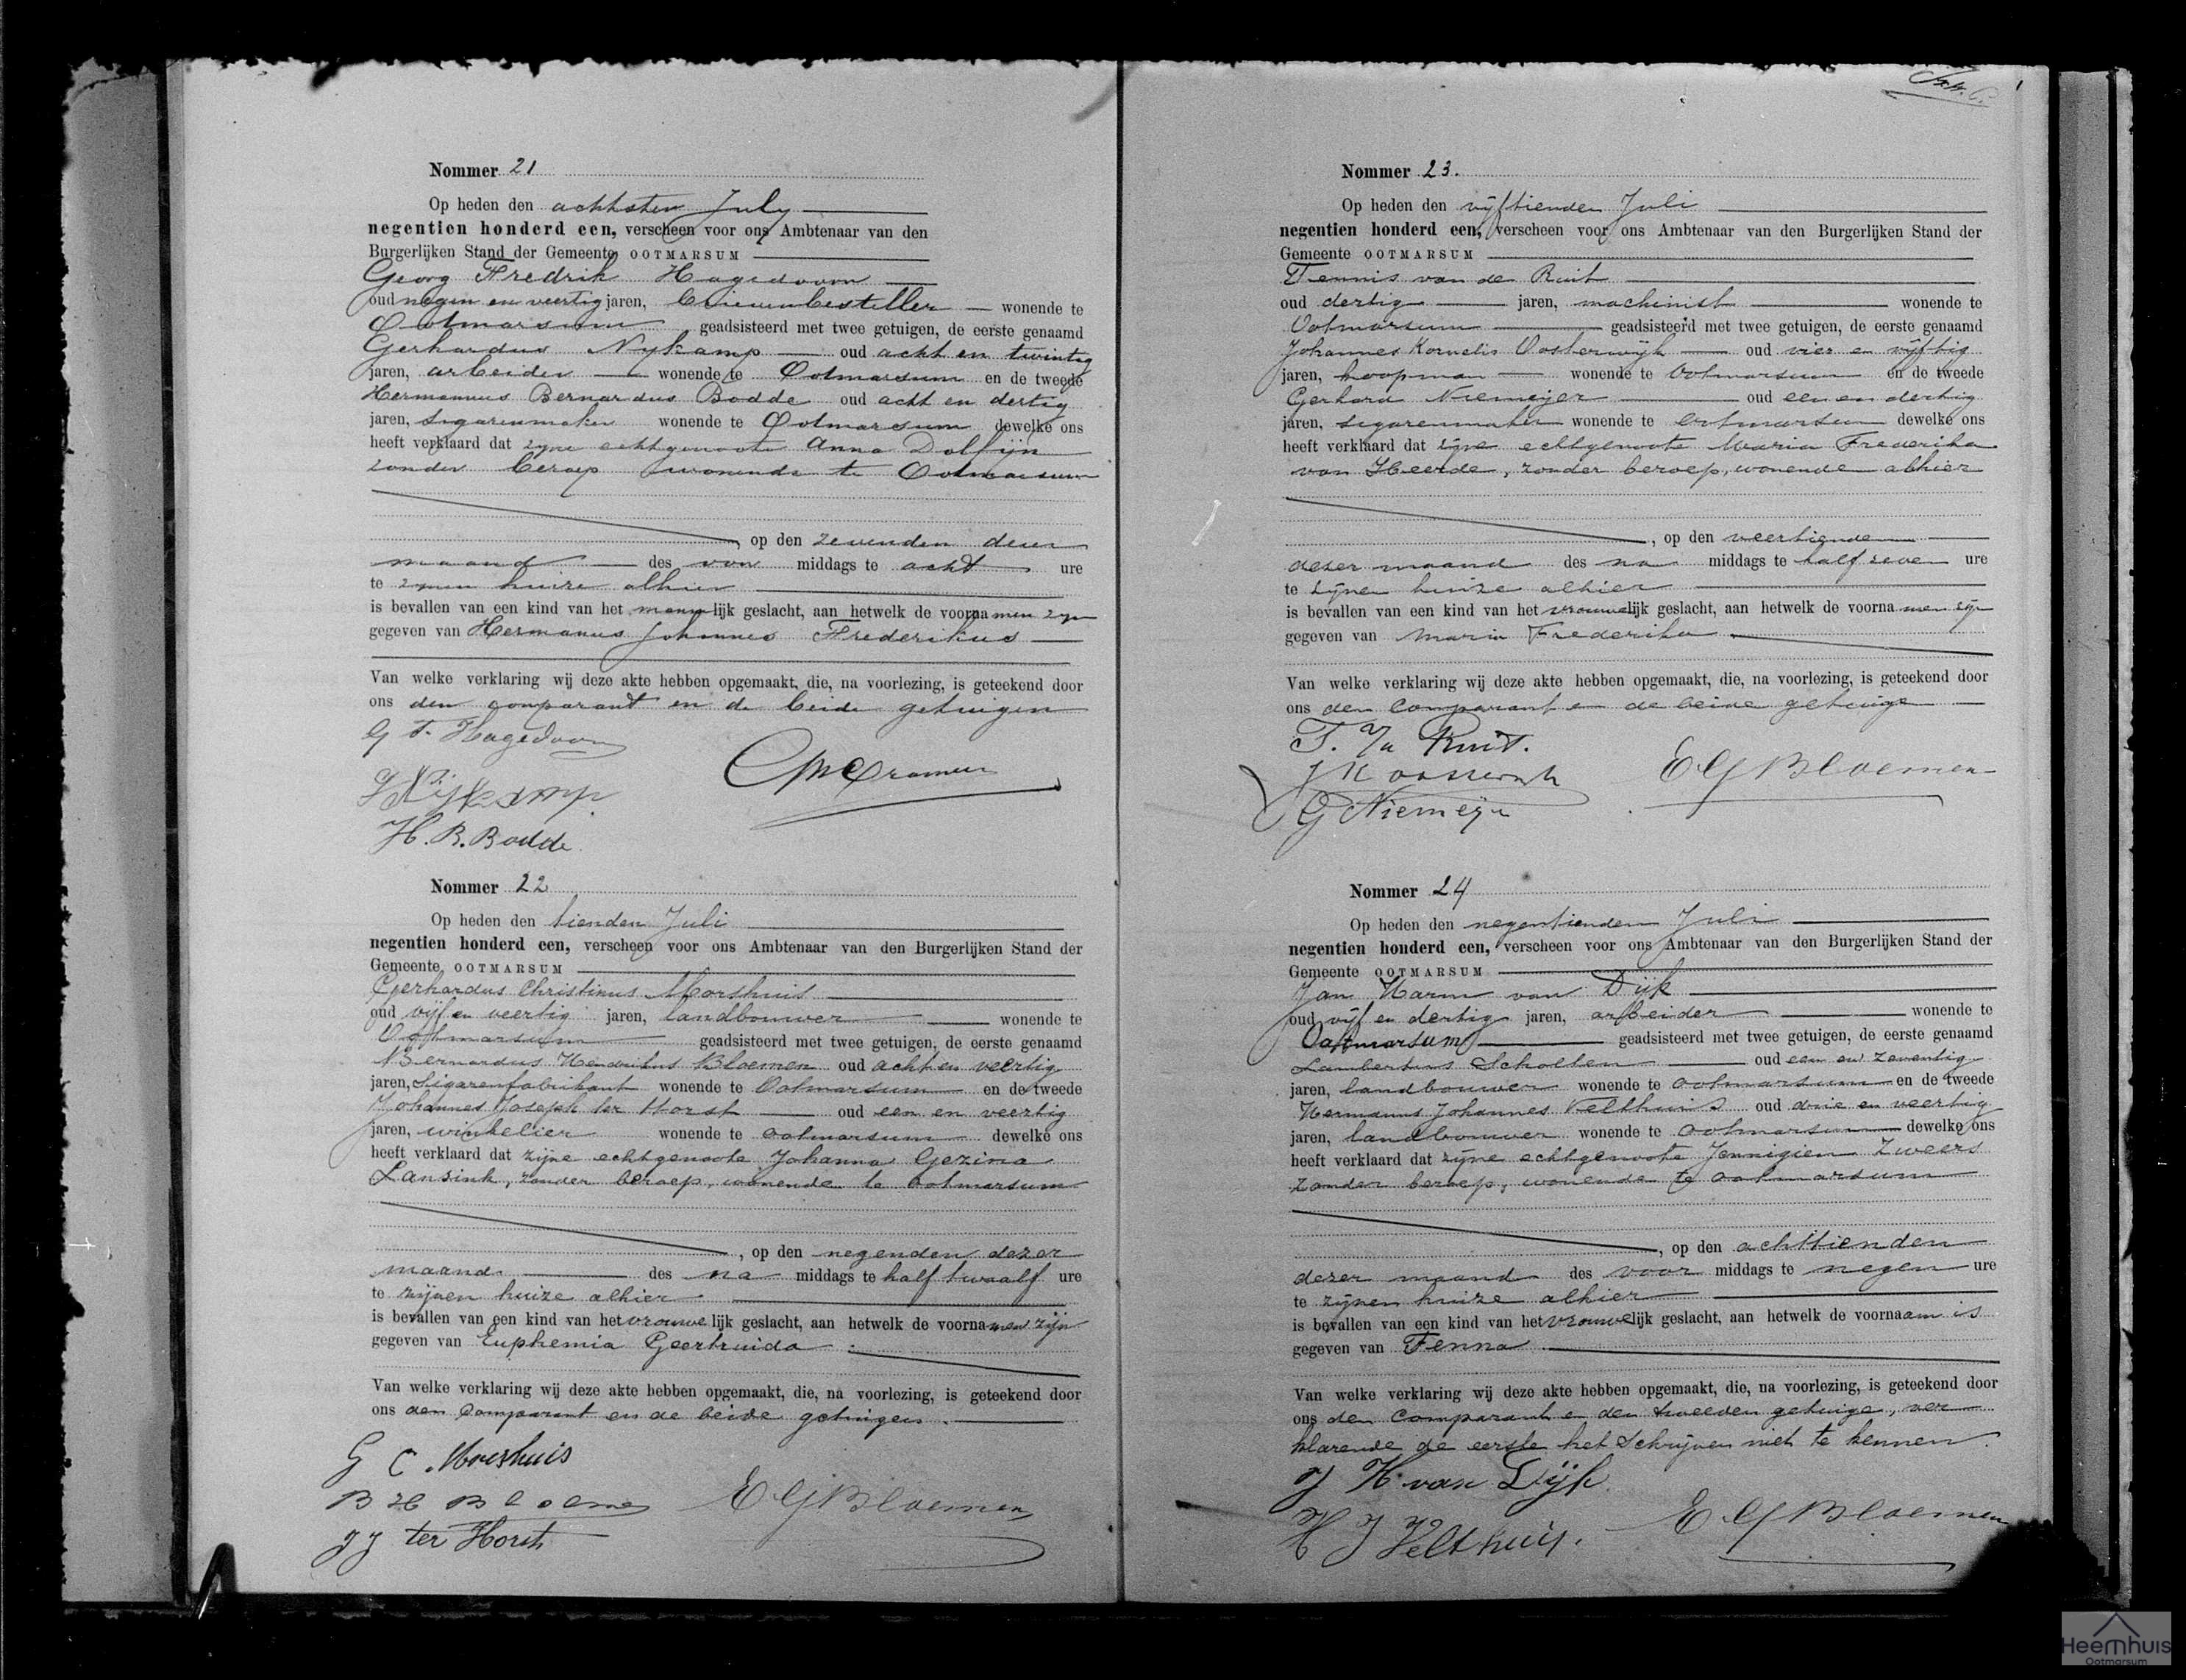 Nommer 21
Op heden den achtsten July
negentien honderd een, verscheen voor ons Ambtenaar van den
Burgerlijken Stand der Gemeente OOTMARSUM
Georg Fredrik Hagedoorn
oud negen en veertig jaren, brievenbesteller wonende te
Ootmarsum geadsisteerd met twee getuigen, de eerste genaamd
Gerhardus Nykamp oud acht en twintig
jaren, arbeider wonende te Ootmarsum en de tweede
Hermannus Bernardus Bodde oud acht en dertig
jaren, sigarenmaker wonende te Ootmarsum dewelke ons
heeft verklaard dat zyne echtgenoote Anna Dolfijn
zonder beroep wonende te Ootmarsum
, op den zevenden dezer
maand des voor middags te acht ure
te zynen huize alhier
is bevallen van een kind van het mannelijk geslacht, aan hetwelk de voornamen zyn
gegeven van Hermanus Johannes Frederikus
Van welke verklaring wij deze akte hebben opgemaakt, die, na voorlezing, is geteekend door
ons den comparant en de beide getuigen
G F. Hagedoorn
Cramer
Nijkamp
H. B. Bodde.
Nommer 22
Op heden den tienden Juli
negentien honderd een, verscheen voor ons Ambtenaar van den Burgerlijken Stand der
Gemeente OOTMARSUM
Gerhardus Christinus Morshuis
oud vijf en veertig jaren, landbouwer wonende te
Ootmarsum geadsisteerd met twee getuigen, de eerste genaamd
Bernardus Hendrikus Bloemen oud acht en veertig
jaren, sigarenfabrikant wonende te Ootmarsum en de tweede
Johannes Joseph ter Horst oud een en veertig
jaren, winkelier wonende te Ootmarsum dewelke ons
heeft verklaard dat zijne echtgenoote Johanna Gezina
Lansink, zonder beroep, wonende te Ootmarsum
, op den negenden dezer
maand des na middags te half twaalf ure
te zijnen huize alhier
is bevallen van een kind van het vrouwelijk geslacht, aan hetwelk de voornamen zijn
gegeven van Euphemia Geertruida
Van welke verklaring wij deze akte hebben opgemaakt, die, na voorlezing, is geteekend door
ons den Comparant en de beide getuigen.
G C. Morshuis
B H Bloemen
E G Bloemen
J J ter Horst
Nommer 23.
Op heden den vijftienden Juli
negentien honderd een, verscheen voor ons Ambtenaar van den Burgerlijken Stand der
Gemeente OOTMARSUM
Teunis van de Ruit
oud dertig jaren, machinist wonende te
Ootmarsum geadsisteerd met twee getuigen, de eerste genaamd
Johannes Kornelis Oosterwijk oud vier en vijftig
jaren, koopman wonende te Ootmarsum en de tweede
Gerhard Niemeijer oud een en dertig
jaren, sigarenmaker wonende te Ootmarsum dewelke ons
heeft verklaard dat zijne echtgenoote Maria Frederika
van Heerde, zonder beroep, wonende alhier
, op den veertienden
dezer maand des na middags te half zeven ure
te zijnen huize alhier
is bevallen van een kind van het vrouwelijk geslacht, aan hetwelk de voornamen zijn
gegeven van Maria Frederika
Van welke verklaring wij deze akte hebben opgemaakt, die, na voorlezing, is geteekend door
ons den Comparant en de beide getuigen
T. Vd Ruit.
J K Oosterwijk
E G Bloemen
G Niemeijer
Nommer 24
Op heden den negentienden Juli
negentien honderd een, verscheen voor ons Ambtenaar van den Burgerlijken Stand der
Gemeente OOTMARSUM
Jan Harm van Dijk
oud vijf en dertig jaren, arbeider wonende te
Ootmarsum geadsisteerd met twee getuigen, de eerste genaamd
Lambertus Scholten oud een en zeventig
jaren, landbouwer wonende te Ootmarsum en de tweede
Hermannus Johannes Velthuis oud drie en veertig
jaren, landbouwer wonende te Ootmarsum dewelke ons
heeft verklaard dat zijne echtgenoote Jennigien Zweers
zonder beroep, wonende te Ootmarsum
, op den achttienden
dezer maand des voor middags te negen ure
te zijnen huize alhier
is bevallen van een kind van het vrouwelijk geslacht, aan hetwelk de voornaam is
gegeven van Fenna
Van welke verklaring wij deze akte hebben opgemaakt, die, na voorlezing, is geteekend door
ons den Comparant en den tweeden getuige, ver
klarende de eerste het Schrijven niet te kennen.
J H. van Dijk.
E G Bloemen
H J Velthuis.
Heemhuis
Ootmarsum